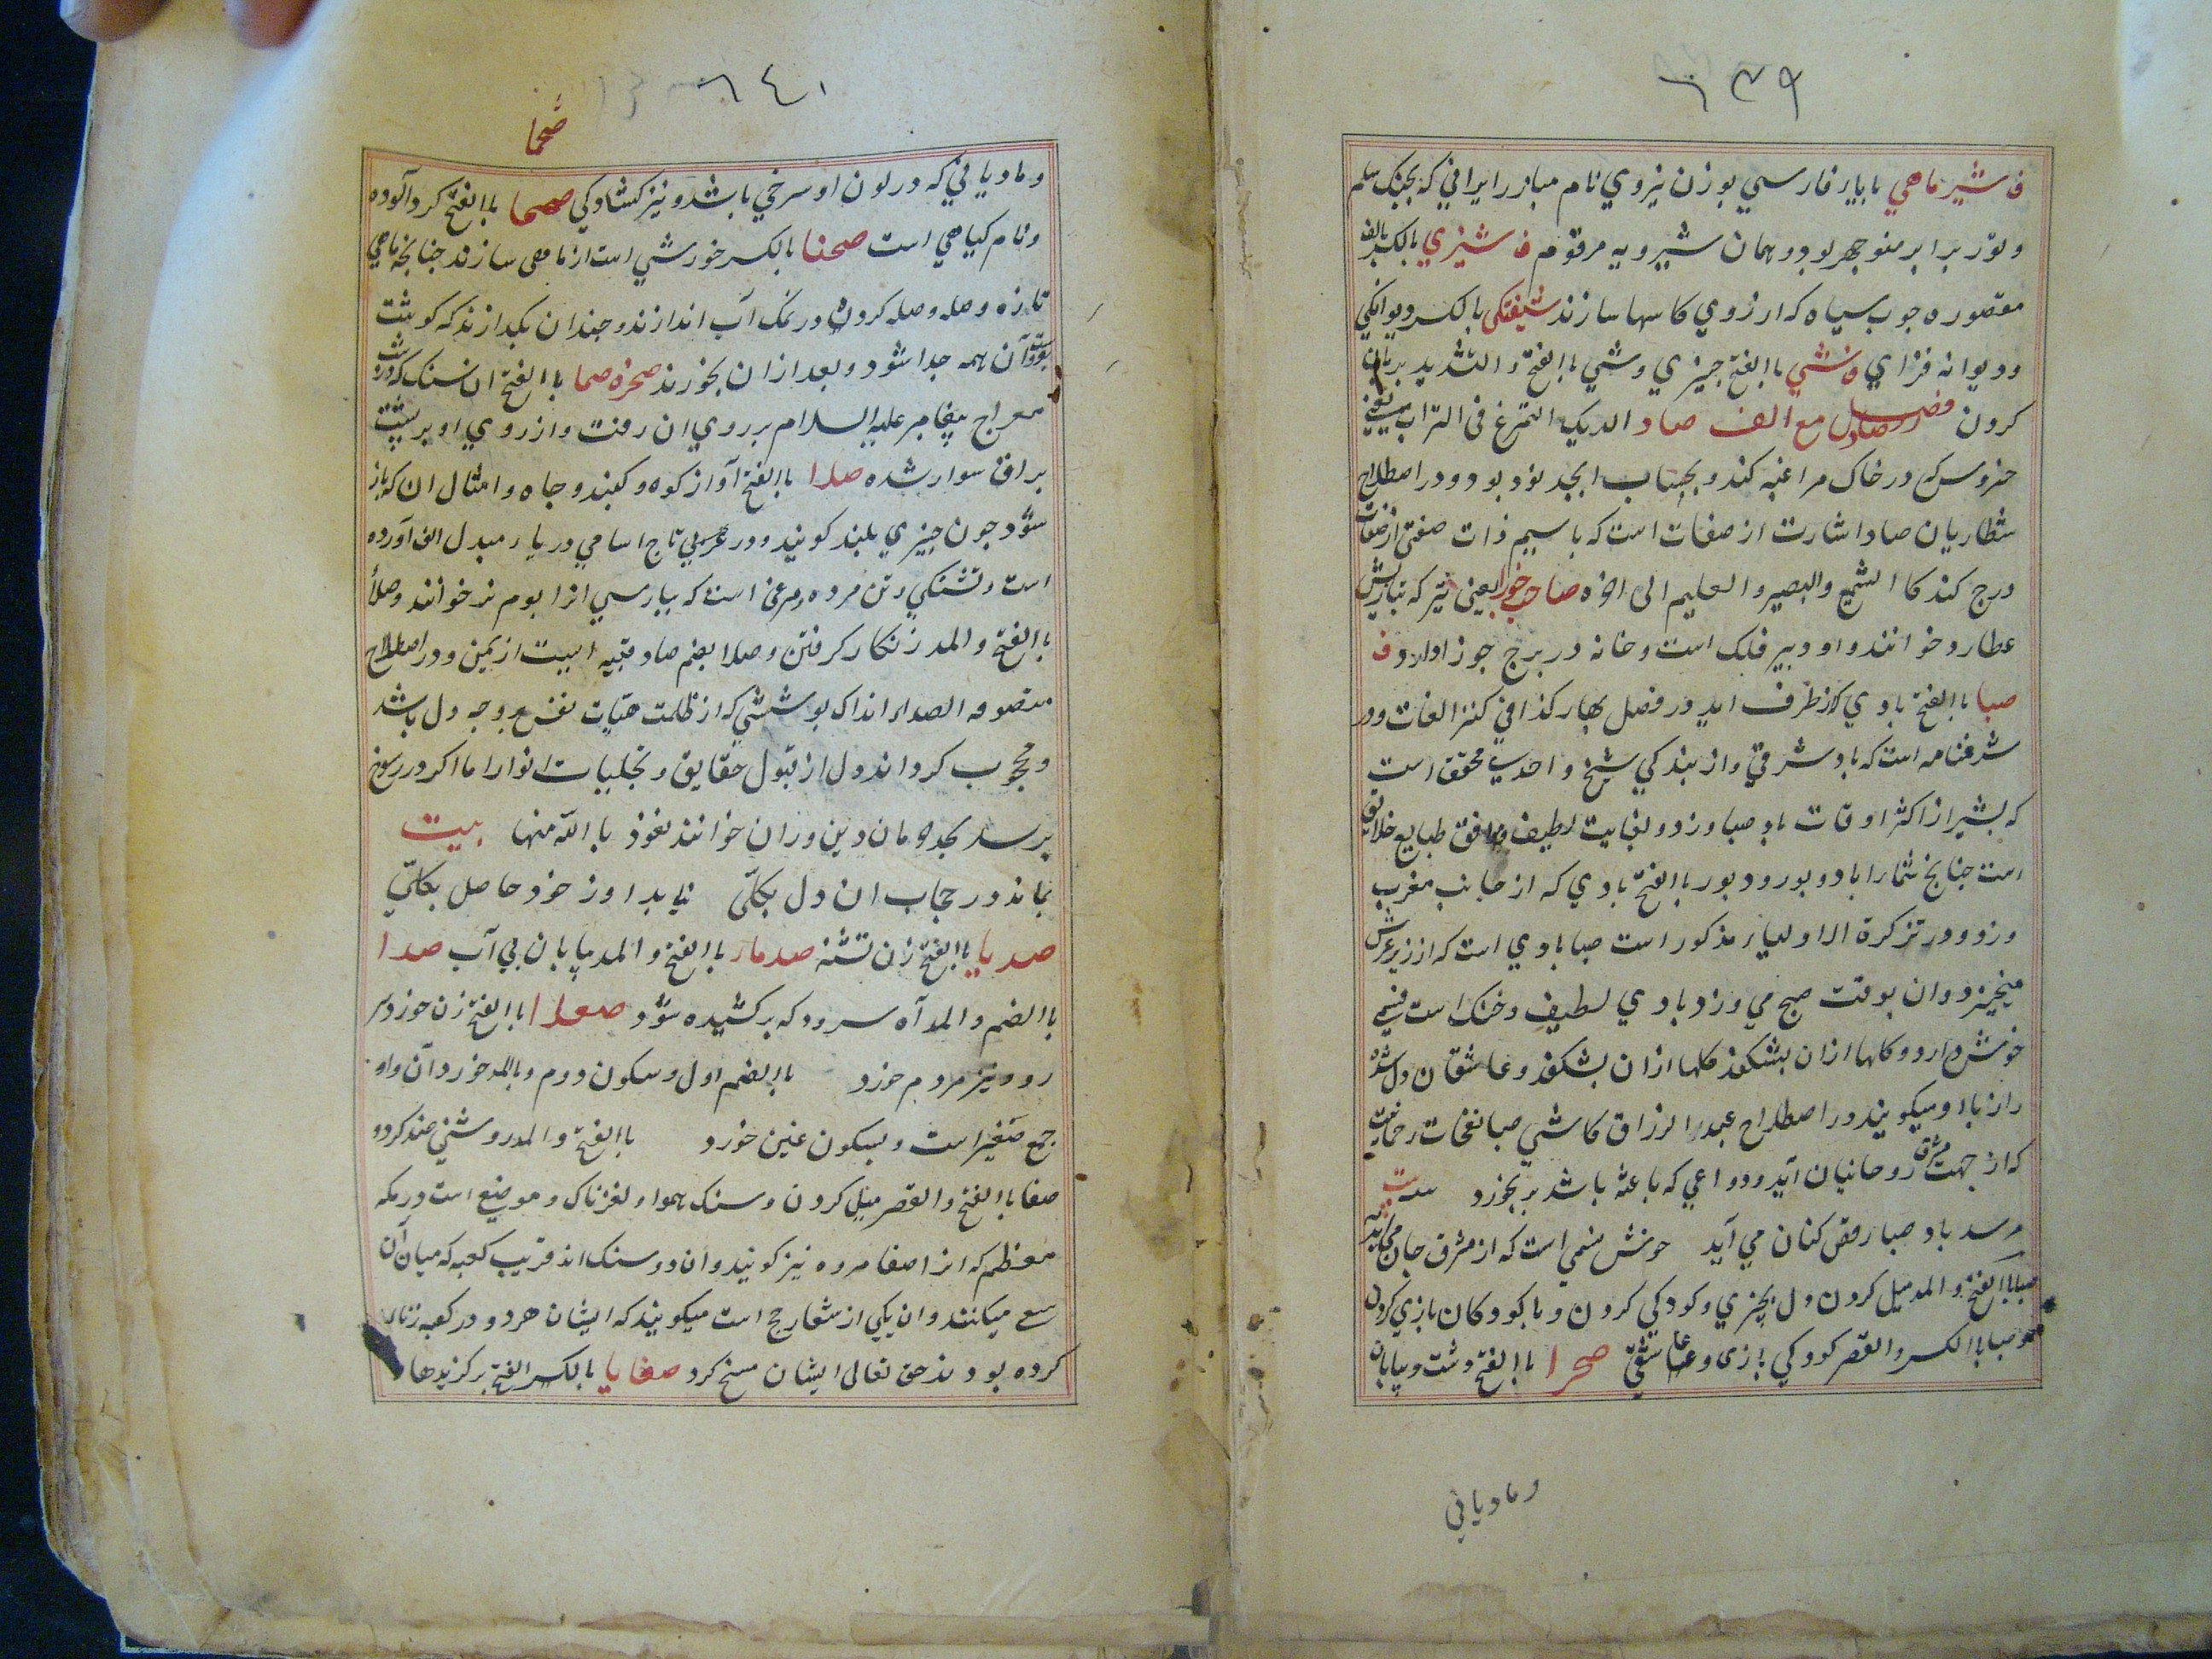 ٦٣٩
ف شیر ماهي بابای فارسي بوزن نیروي نام مبارز ایراني که بجنک سلم
و تور برابر منوچهر بود و همان شیرویه مرقوم ف شیزي بالکسر بالف
مقصوره چوب سیاه که ازوي کاسها سازند شیفتکی بالکسر دیوانکي
و دیوانه فزاي ف شي باالفتح چیزي و شي باالفتح و التشدید بریان
کردن فصل صاد مع الف صاد الدیک التمرغ فی التراب یعني
خروس که در خاک مراغبه کند و بحساب ابجد نود بود و در اصطلاح
شطاریان صاد اشارت از صفات است که باسیم ذات صفتی از صفات
درج کند کا السمیع و البصیر و العلیم الی اخره صاحب جوزا یعني تیر که بتازیش
عطارد خوانند و او دبیر فلک است و خانه در برج جوزا دارد ف
صبا باالفتح بادي کز طرف اید در فصل بهار کذا في کنز الغات و در
شرفنامه است که باد شرقي و از بندکي شیخ واحدي محقق است
که بشیراز اکثر اوقات باد صبا وزد و بغایت لطیف و موافق طبایع خلایق
است چنانچ شمارا باد و بور و دبور باالفتح بادي که از جانب مغرب
وزد و در تزکرة الاولیاء مذکور است صبا بادي است که از زیر عرش
میخیزد و ان بوقت صبح مي وزد بادي لطیف و خنک است نسیمي
خوش دارد و کلها ازان بشکفد کلها ازان بشکفد و عاشقان دل شده
راز بااو میکویند در اصطلاح عبد الرزاق کاشي صبا نفحات رحمانیت
که از جهت مشرق روحانیان آید و دواعي که باعثه باشد بر بخرد بیت
مرسد باد صبا رقص کنان مي آید خوش نسمي است که از مشرق جان مي آید
صبا باالفتح و المد میل کردن دل بچیزي و کودکي کردن و با کودکان بازي کردن
و صبا باالکسر و القصر کودکي بازی و عاشقي صحرا باالفتح دشت و بیابان
و مادیاني
٦٤١
صحما
و مادیاني که در لون او سرخي باشد و نیز کشادکي صحما باالفتح کرد آلوده
و نام کیاهي است صحنا بالکسر خورشي است از ماهی سازند چنانچه ماهي
تازه وصله وصله کرده در نمک آب اندازند و چندان بکدازند که کوشت
و پوست آن همه جدا شود و بعد ازان بخورند صخره صما باالفتح ان سنک که در شب
معراج پیغامبر علیه السلام بر روي ان رفت و از روي او بر پشت
براق سوار شده صدا باالفتح آواز کوه و کنبد و چاه و امثال ان که باز
شود چون چیزي بلند کویند و در عربي تاج اسامي در یاء مبدل الف آورده
است و تشنکي و تن مرده و مرغي است که بپارسي انرا بوم نر خوانند و صدأ
باالفتح و المد زنکار کرفتن و صدا بضم صاد قبیه ایست از یمن و در اصطلاح
متصوفه الصداء انذاک پوششي که از ظلمت هیآت نفس بر وجه دل باشد
و محجوب کرداند دل از قبول حقایق و تجلیات انوار اما اکر در رسوخ
برسد بحد حرمان دین و ران خوانند نعوذ باالله منها بیت
بماند در حجاب ان دل بکلّی نیابد او ز خود حاصل بکلّي
صدیا باالفتح زن تشنه صدماء باالفتح و المد بیابان بي آب صدا
باالضم و المد آه سرود که بر کشیده شود صعدا باالفتح زن خورد سر
رود نیز مردم خرد باالضم اول و سکون دوم و بالمد خوردان واو
جمع صغیر است و بسکون غین خورد باالفتح و المد روشني ضد کرد و
صفا باالفتح و القصر میل کردن و سنک هموار و لغزناک و موضع است در مکه
معظم که انرا صفا مروه نیز کویند و ان دو سنک اند قریب کعبه که میان آن
سعي میکنند و ان یکي از شعار حج است میکویند که ایشان هر دو در کعبه زنا
کرده بودند حق تعالی ایشان مسخ کرد صفایا بالکسر الفتح برکزیدها